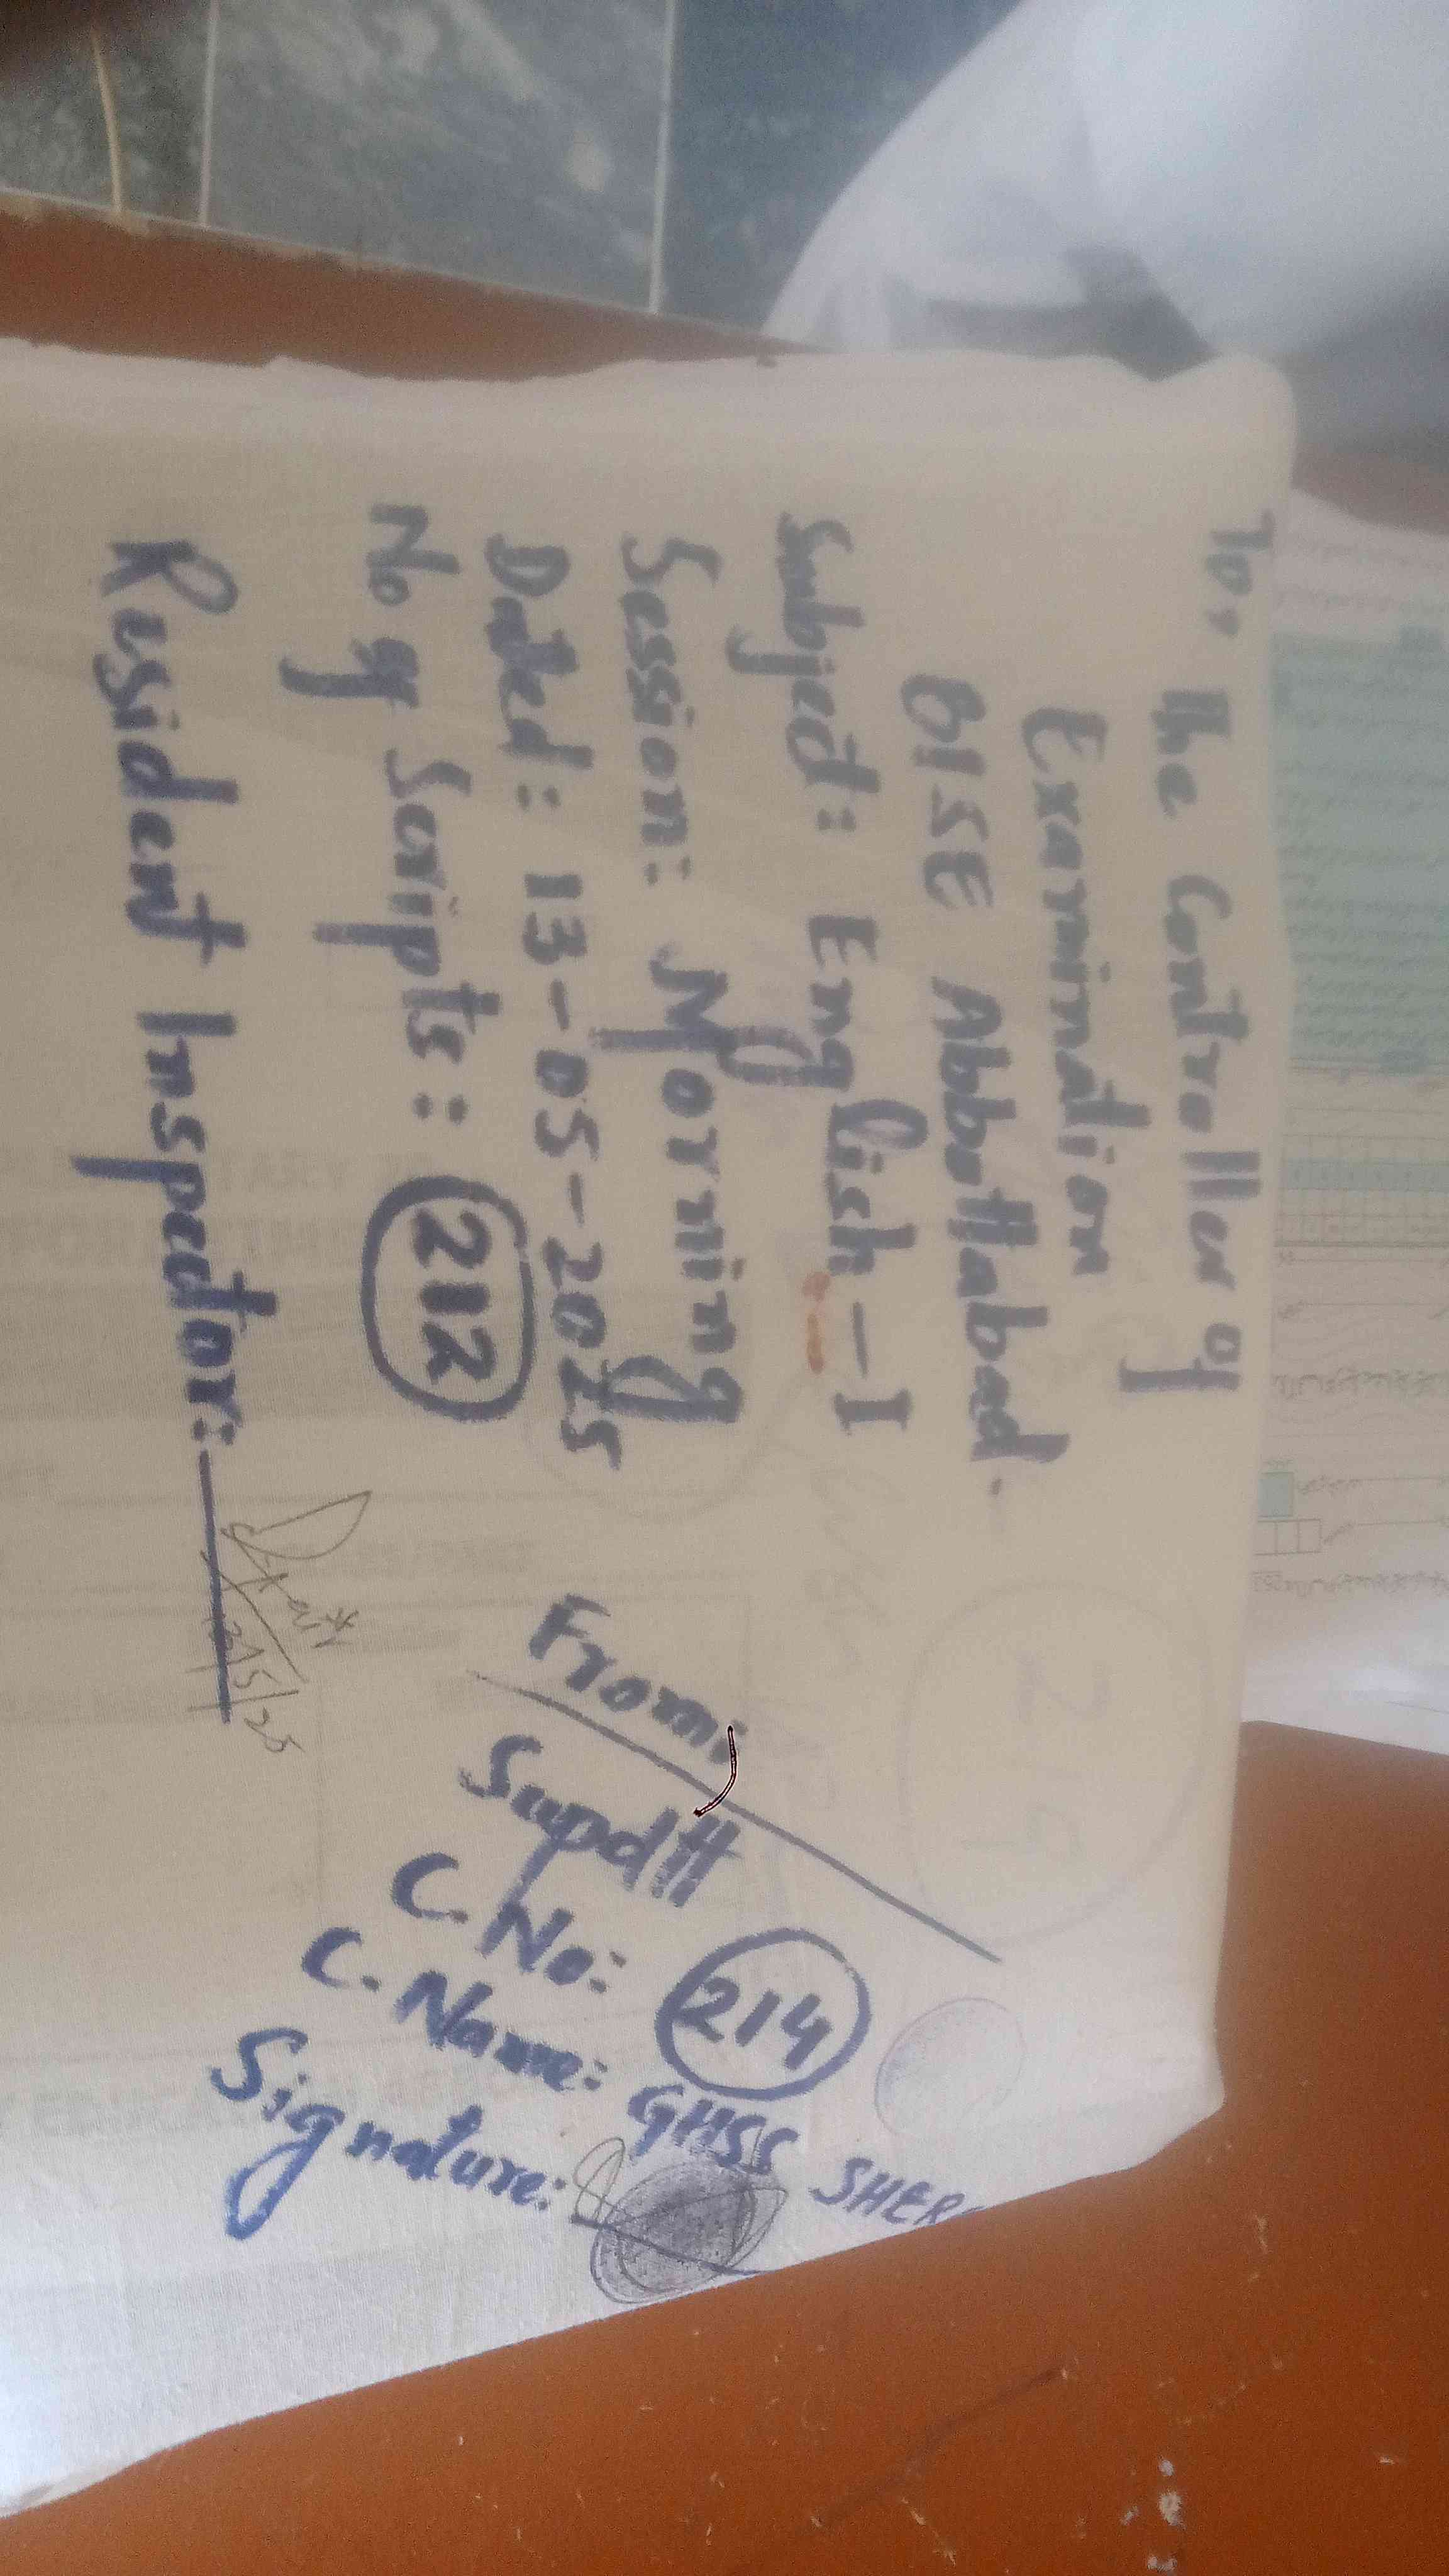 To, The Controller of
Examination
BISE Abbottabad.
Subject: English-I
Session: Morning
Dated: 13-05-2025
No of Scripts: 212
Resident Inspector:
From;
Supdtt
C. No: 214
C. Name: GHSS SHER
Signature: